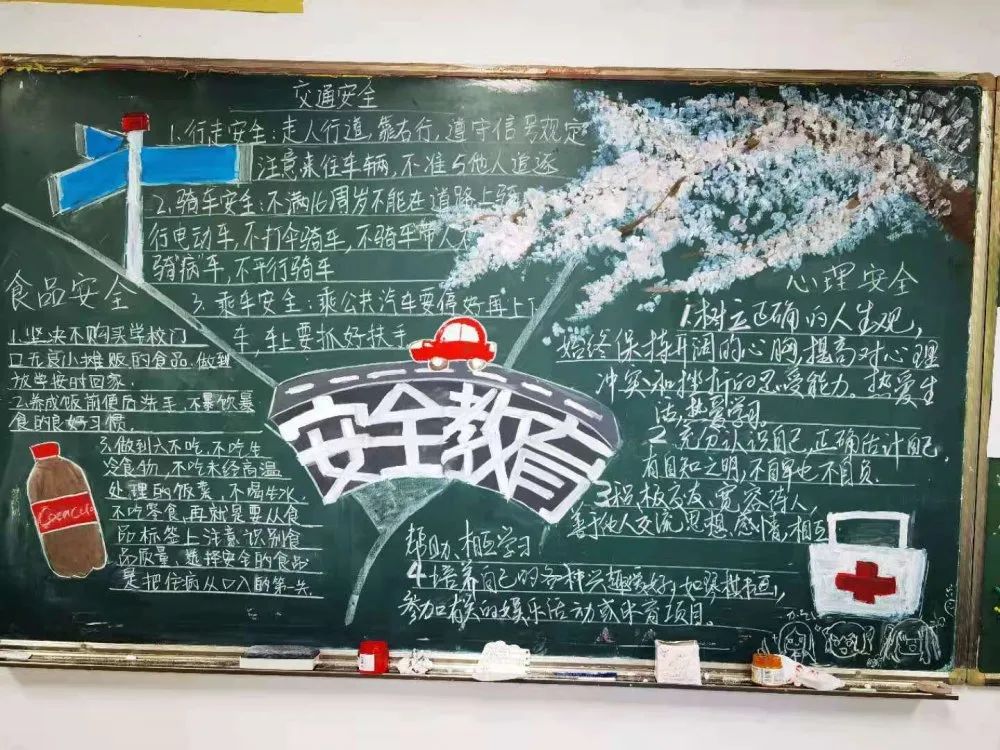 交通安全
1.行走安全:走人行道,靠右行,遵守信号规定
注意来往车辆,不准与他人追逐
2.骑车安全:不满16周岁不能在道路上骑
行电动车,不打伞骑车,不骑车带人不
骑"病"车,不平行骑车
3.乘车安全:乘公共汽车要停好再上下
车,车上要抓好扶手
食品安全
1.坚决不购买学校门
口无良小摊贩的食品.做到
放学按时回家.
2.养成饭前便后洗手,不暴饮暴
食的良好习惯.
3.做到六不吃,不吃生
冷食物,不吃未经高温
处理的饭菜,不喝生水.
不吃零食,再就是要从食
品标签上注意识别食
品质量,选择安全的食品
是把住病从口入的第一关.
CocaCola
安全教育
心理安全
1.树立正确的人生观,
始终保持开阔的心胸,提高对心理
冲突和挫折的忍受能力.热爱生
活,热爱学习.
2.充分认识自己,正确估计自己,
有自知之明,不自卑也不自负.
3.积极交友、宽容待人,
善于他人交流思想、感情,相互
帮助、相互学习
4.培养自己的各种兴趣爱好,如琴棋书画,
参加有关的娱乐活动或体育项目.